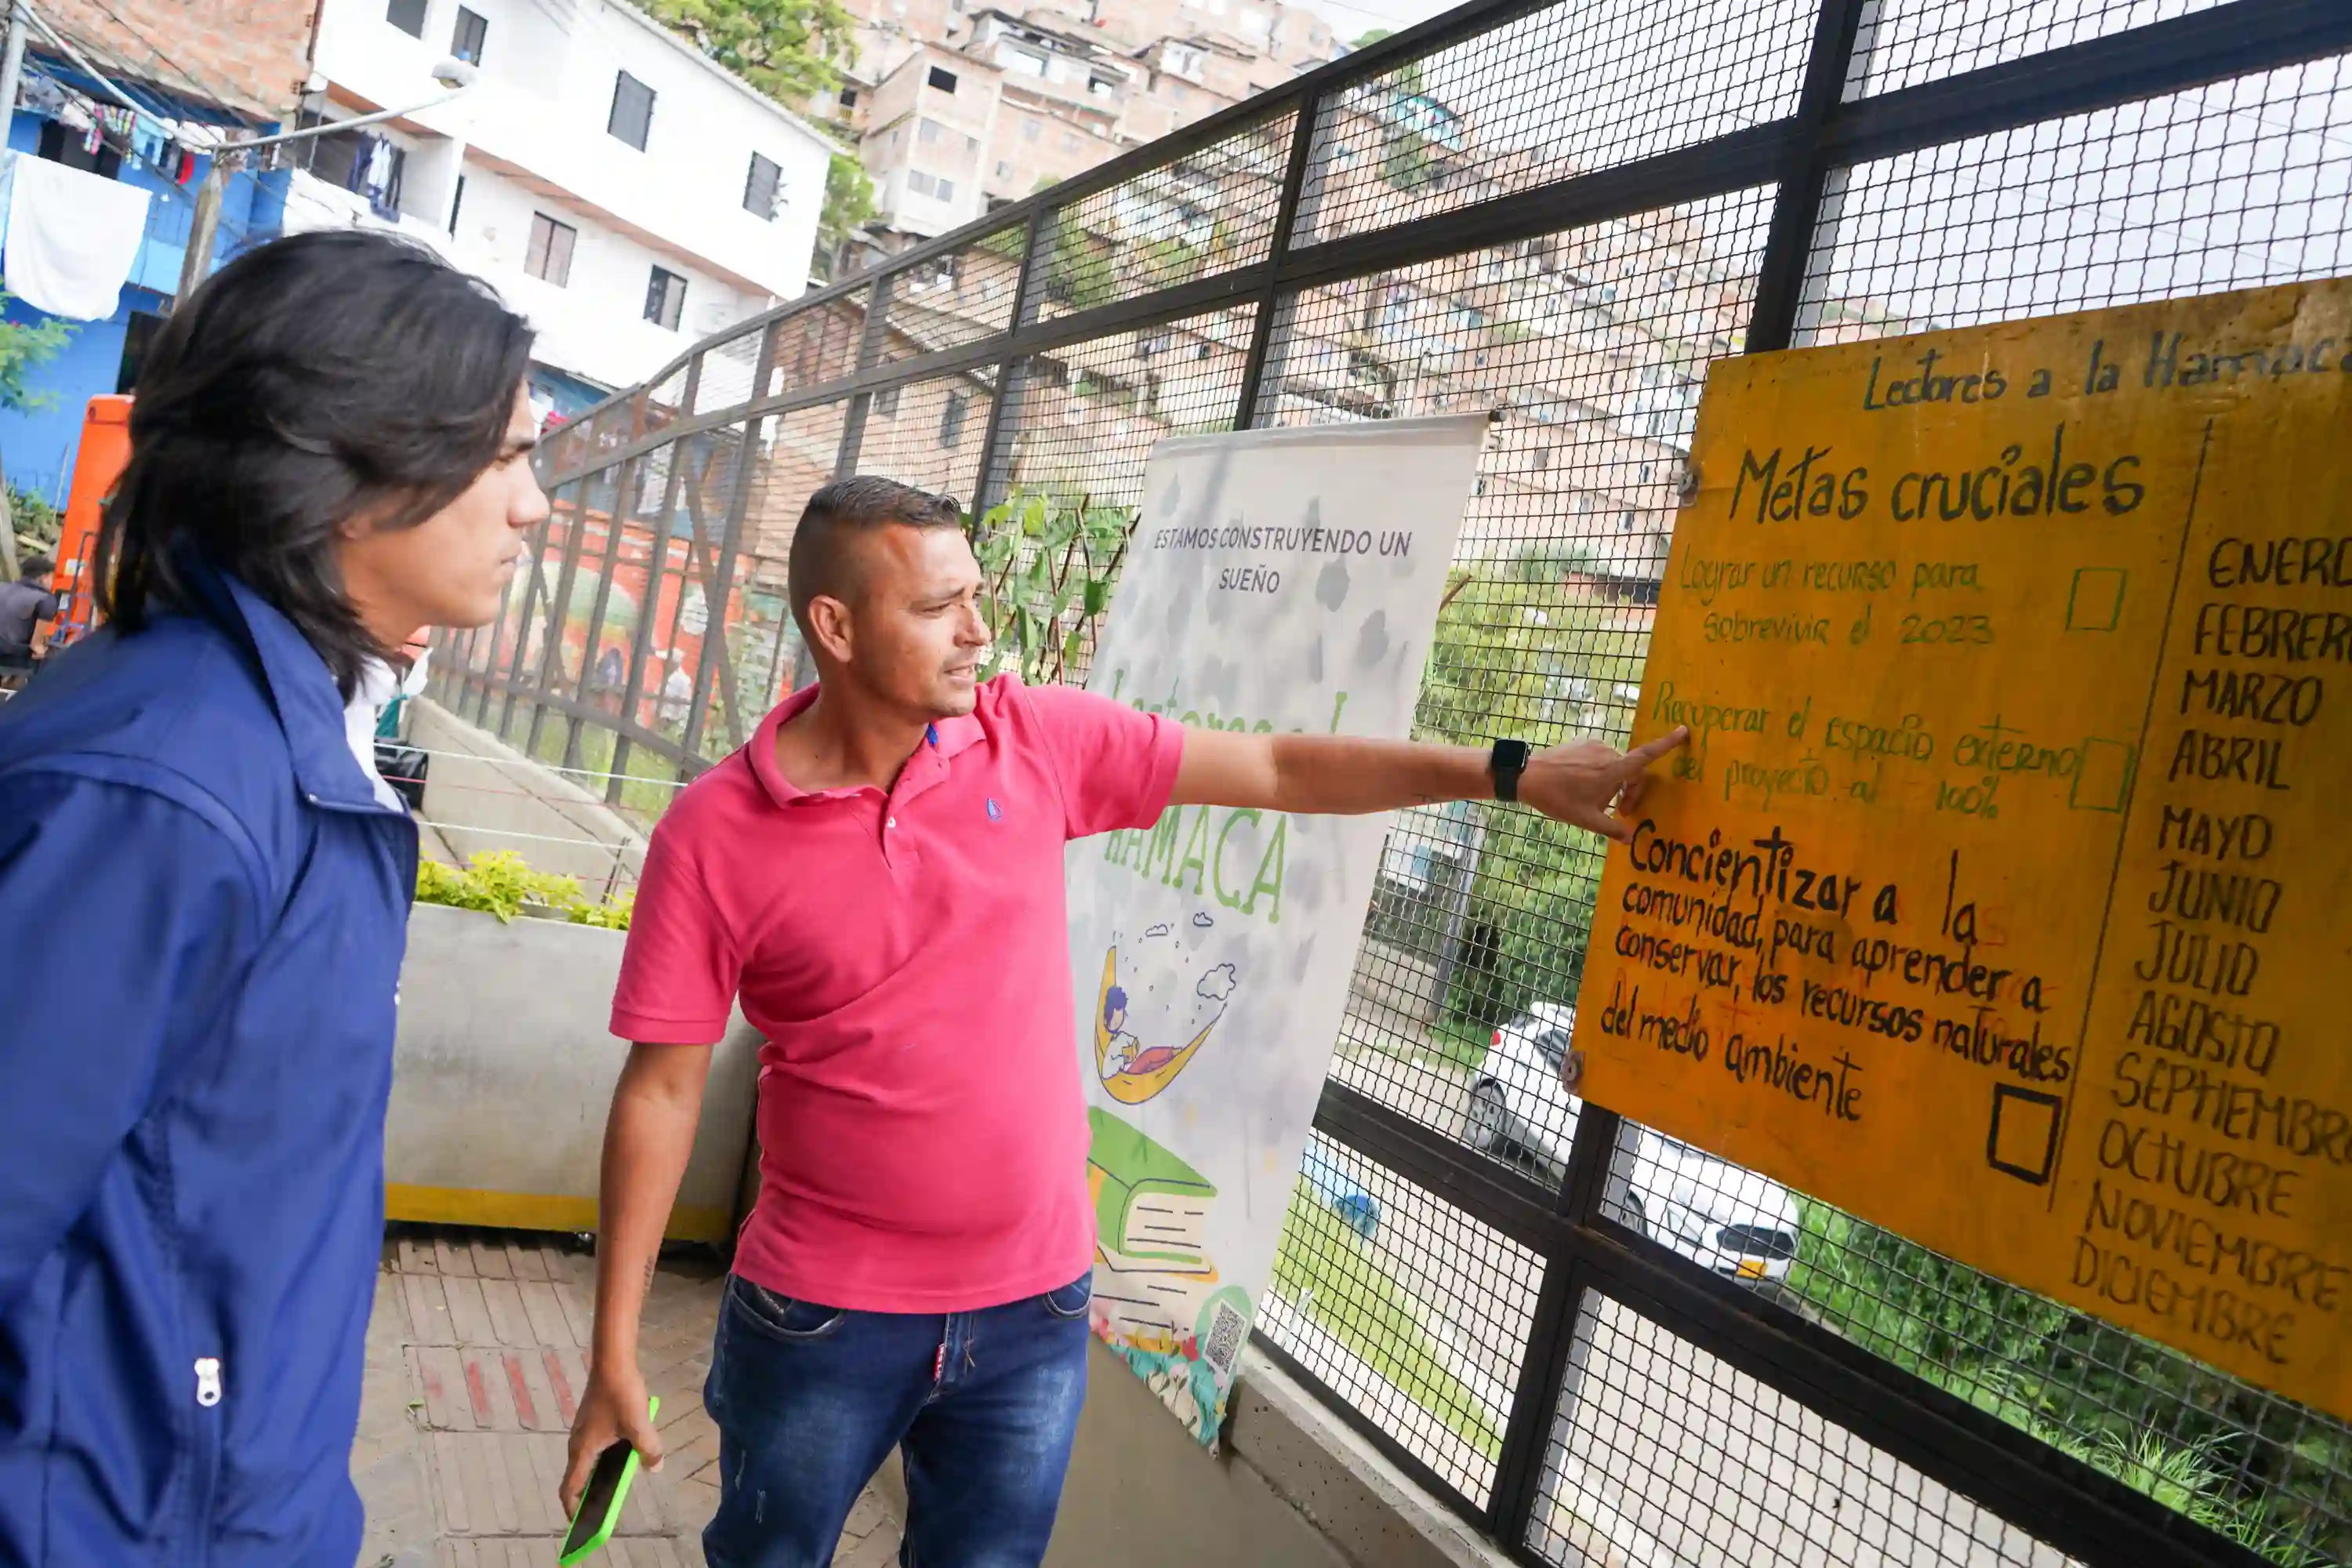 ESTAMOS CONSTRUYENDO UN
SUEÑO
HAMACA
Lectores a la Hamac
Metas cruciales
Lograr un recurso para
sobrevivir el 2023
Recuperar el espacio externo
del proyecto al 100%
Concientizar a las
comunidad, para aprender a
conservar, los recursos naturales
del medio ambiente
ENERO
FEBRER
MARZO
ABRIL
MAYO
JUNIO
JULIO
AGOSTO
SEPTIEMBR
OCTUBRE
NOVIEMBRE
DICIEMBRE